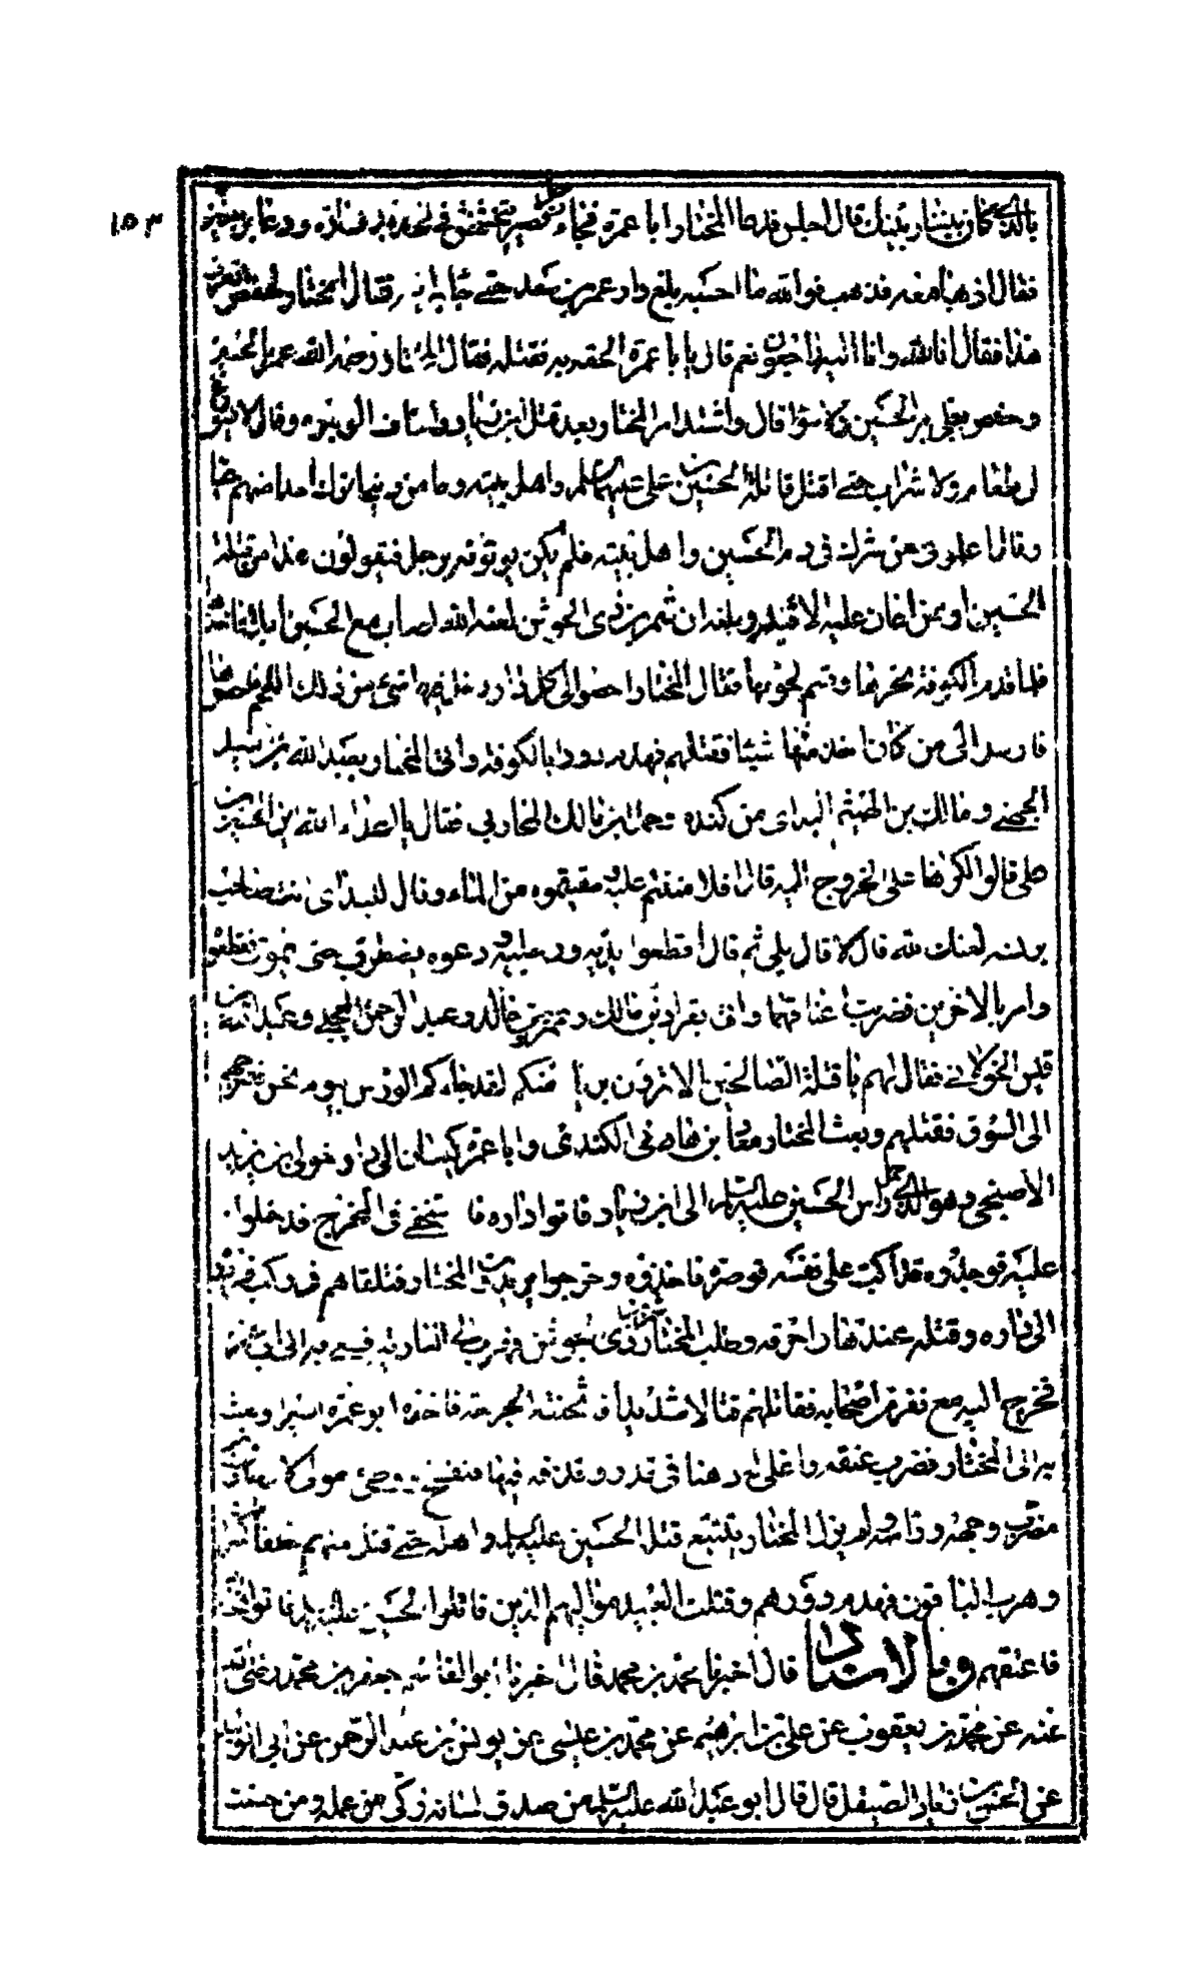 ١٥٣
بالذي كان بيننا وبينك قال اجلس فدعا المختار ابا عمرة فجاء رجل قصير يتخشخش في الحديد فساره ودعا برجلين
فقال اذهبا معه فذهب فوالله ما احسبه بلغ دار عمر بن سعد حتى جاء براسه فقال المختار لحفص اتعرف
هذا فقال انا لله وانا اليه راجعون نعم قال يا با عمرة الحقه به فقتله فقال المختار رحمه الله عمر بالحسين
وحفص بعلي بن الحسين ولا سواء قال واشتد امر المختار بعد قتل ابن زياد واخاف الوجوه وقال لا يسوغ
لي طعام ولا شراب حتى اقتل قتلة الحسين بن علي عليهما السلم واهل بيته وما من ديني اترك احدا منهم حيا
وقال اعلموني من شرك في دم الحسين واهل بيته فلم يكن يؤتونه برجل فيقولون هذا من قتلة
الحسين او ممن اعان عليه الا قتله وبلغه ان شمر بن ذي الجوشن لعنه الله اصاب مع الحسين ابلا فاخذها
فلما قدم الكوفة نحرها وقسم لحومها فقال المختار احصوا لي كل دار دخل فيها شيء من ذلك اللحم فاحصوها
فارسل الى من كان اخذ منها شيئا فقتلهم وهدم دورا بالكوفة واتي المختار بعبد الله بن اسيد
الجهني ومالك بن الهيثم البدائي من كندة وحمل بن مالك المحاربي فقال يا اعداء الله اين الحسين بن
علي قالوا اكرهنا على الخروج اليه قال افلا مننتم عليه وسقيتموه من الماء وقال للبدائي انت صاحب
برنسه لعنك الله قال لا قال بلى ثم قال اقطعوا يديه ورجليه ودعوه يضطرب حتى يموت فقطعوه
وامر بالاخرين فضربت اعناقهما واتي بقراد بن مالك وعمرو بن خالد وعبد الرحمن البجلي وعبد الله بن
قيس الخولاني فقال لهم يا قتلة الصالحين الا ترون الله بريئا منكم لقد جاءكم الورس بيوم نحس فاخرجهم
الى السوق فقتلهم وبعث المختار معاذ بن هاني الكندي وابا عمرة كيسان الى دار خولي بن يزيد
الاصبحي وهو الذي حمل راس الحسين عليه السلم الى ابن زياد فاتوا داره فاستخفى في المخرج فدخلوا
عليه فوجدوه قد اكب على نفسه قوصرة فاخذوه وخرجوا يريدون المختار فتلقاهم في ركب فردوه
الى داره وقتله عندها واحرقه وطلب المختار شمر بن ذي الجوشن فهرب الى البادية فسعى به الى ابي عمرة
فخرج اليه مع نفر من اصحابه فقاتلهم قتالا شديدا فاثخنته الجراحة فاخذه ابو عمرة اسيرا وبعث
به الى المختار فضرب عنقه واغلى له دهنا في قدر وقذفه فيها فتفسخ ووطئ مولى لال حارثة بن
مضرب وجهه وراسه ولم يزل المختار يتتبع قتلة الحسين عليه السلم واهله حتى قتل منهم خلقا كثيرا
وهرب الباقون فهدم دورهم وقتلت العبيد مواليهم الذين قاتلوا الحسين عليه السلم فاتوا المختار
فاعتقهم وبالاسناد قال اخبرنا محمد بن محمد قال اخبرنا ابو القاسم جعفر بن محمد رضي الله
عنه عن محمد بن يعقوب عن علي بن ابراهيم عن محمد بن عيسى عن يونس بن عبد الرحمن عن ابي الوليد
عن الحسن بن زياد الصيقل قال قال ابو عبد الله عليه السلم من صدق لسانه زكى من عمله ومن حسنت